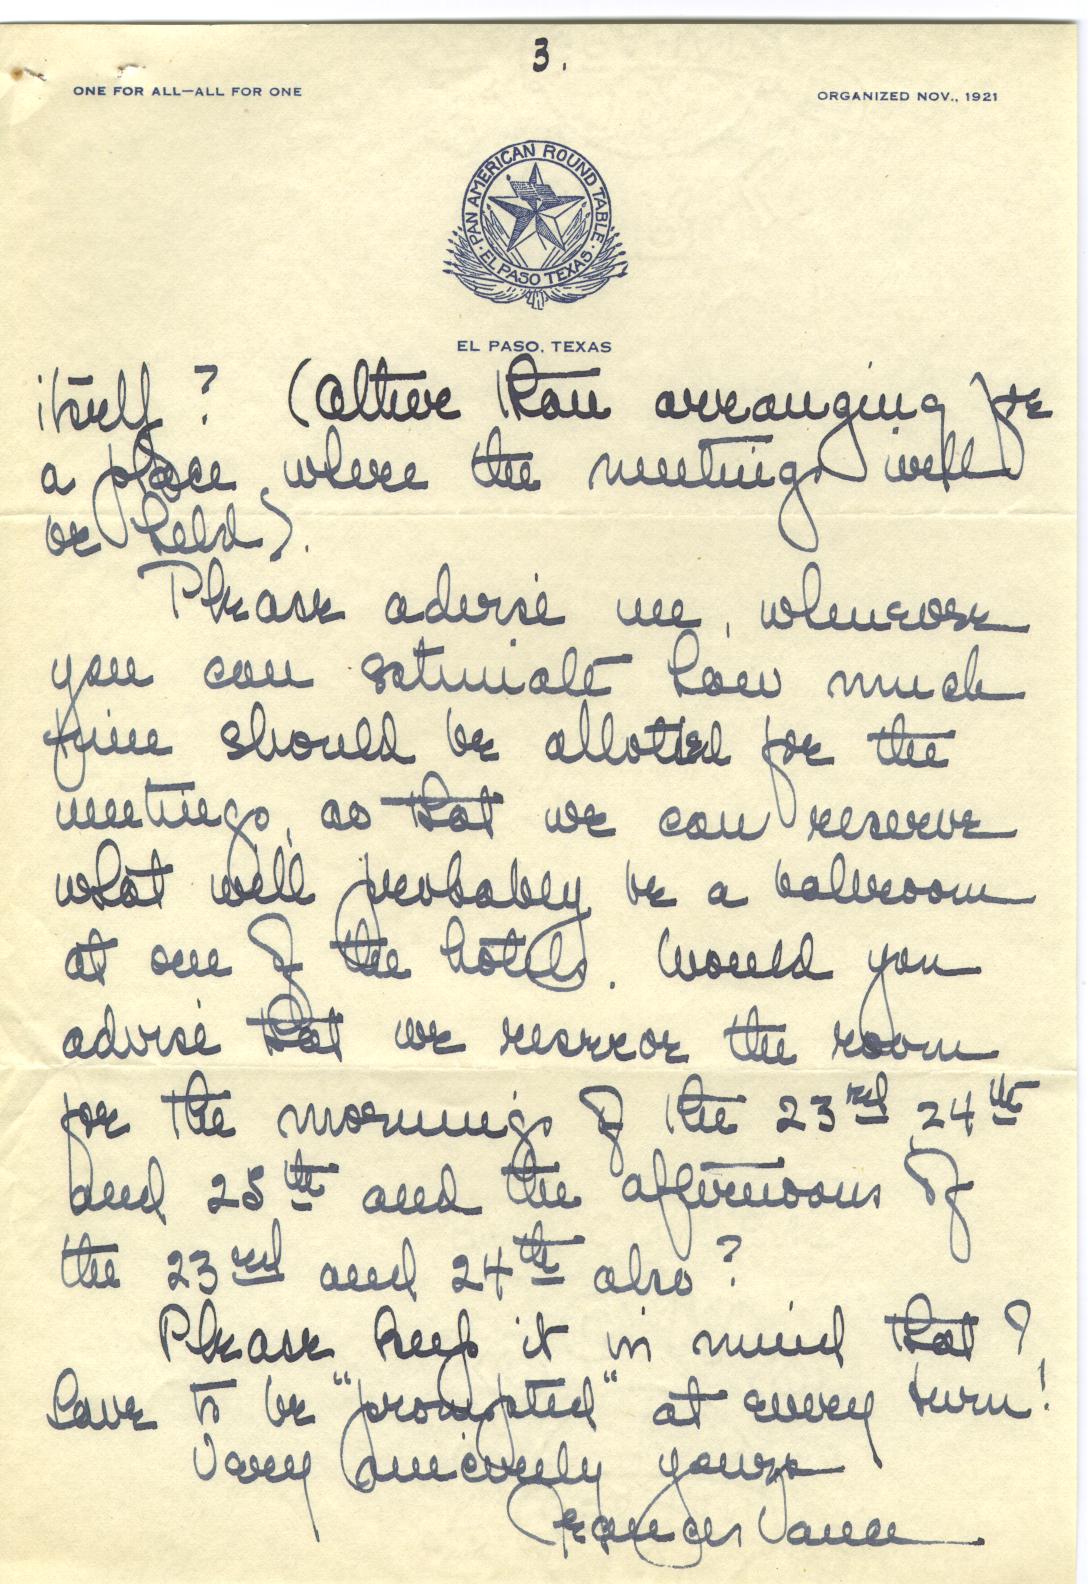 3.
ONE FOR ALL—ALL FOR ONE
ORGANIZED NOV., 1921
PAN AMERICAN ROUND TABLE
· EL PASO TEXAS ·
EL PASO, TEXAS
itself? (Other than arranging for
a place where the meetings will
be held).
Please advise me, whenever
you can estimate how much
time should be allotted for the
meetings, so that we can reserve
what will probably be a ballroom
at one of the hotels. Would you
advise that we reserve the room
for the mornings of the 23rd, 24th
and 25th and the afternoons of
the 23rd and 24th also?
Please keep it in mind that I
have to be "prompted" at every turn!
Very sincerely yours
Frances Vance